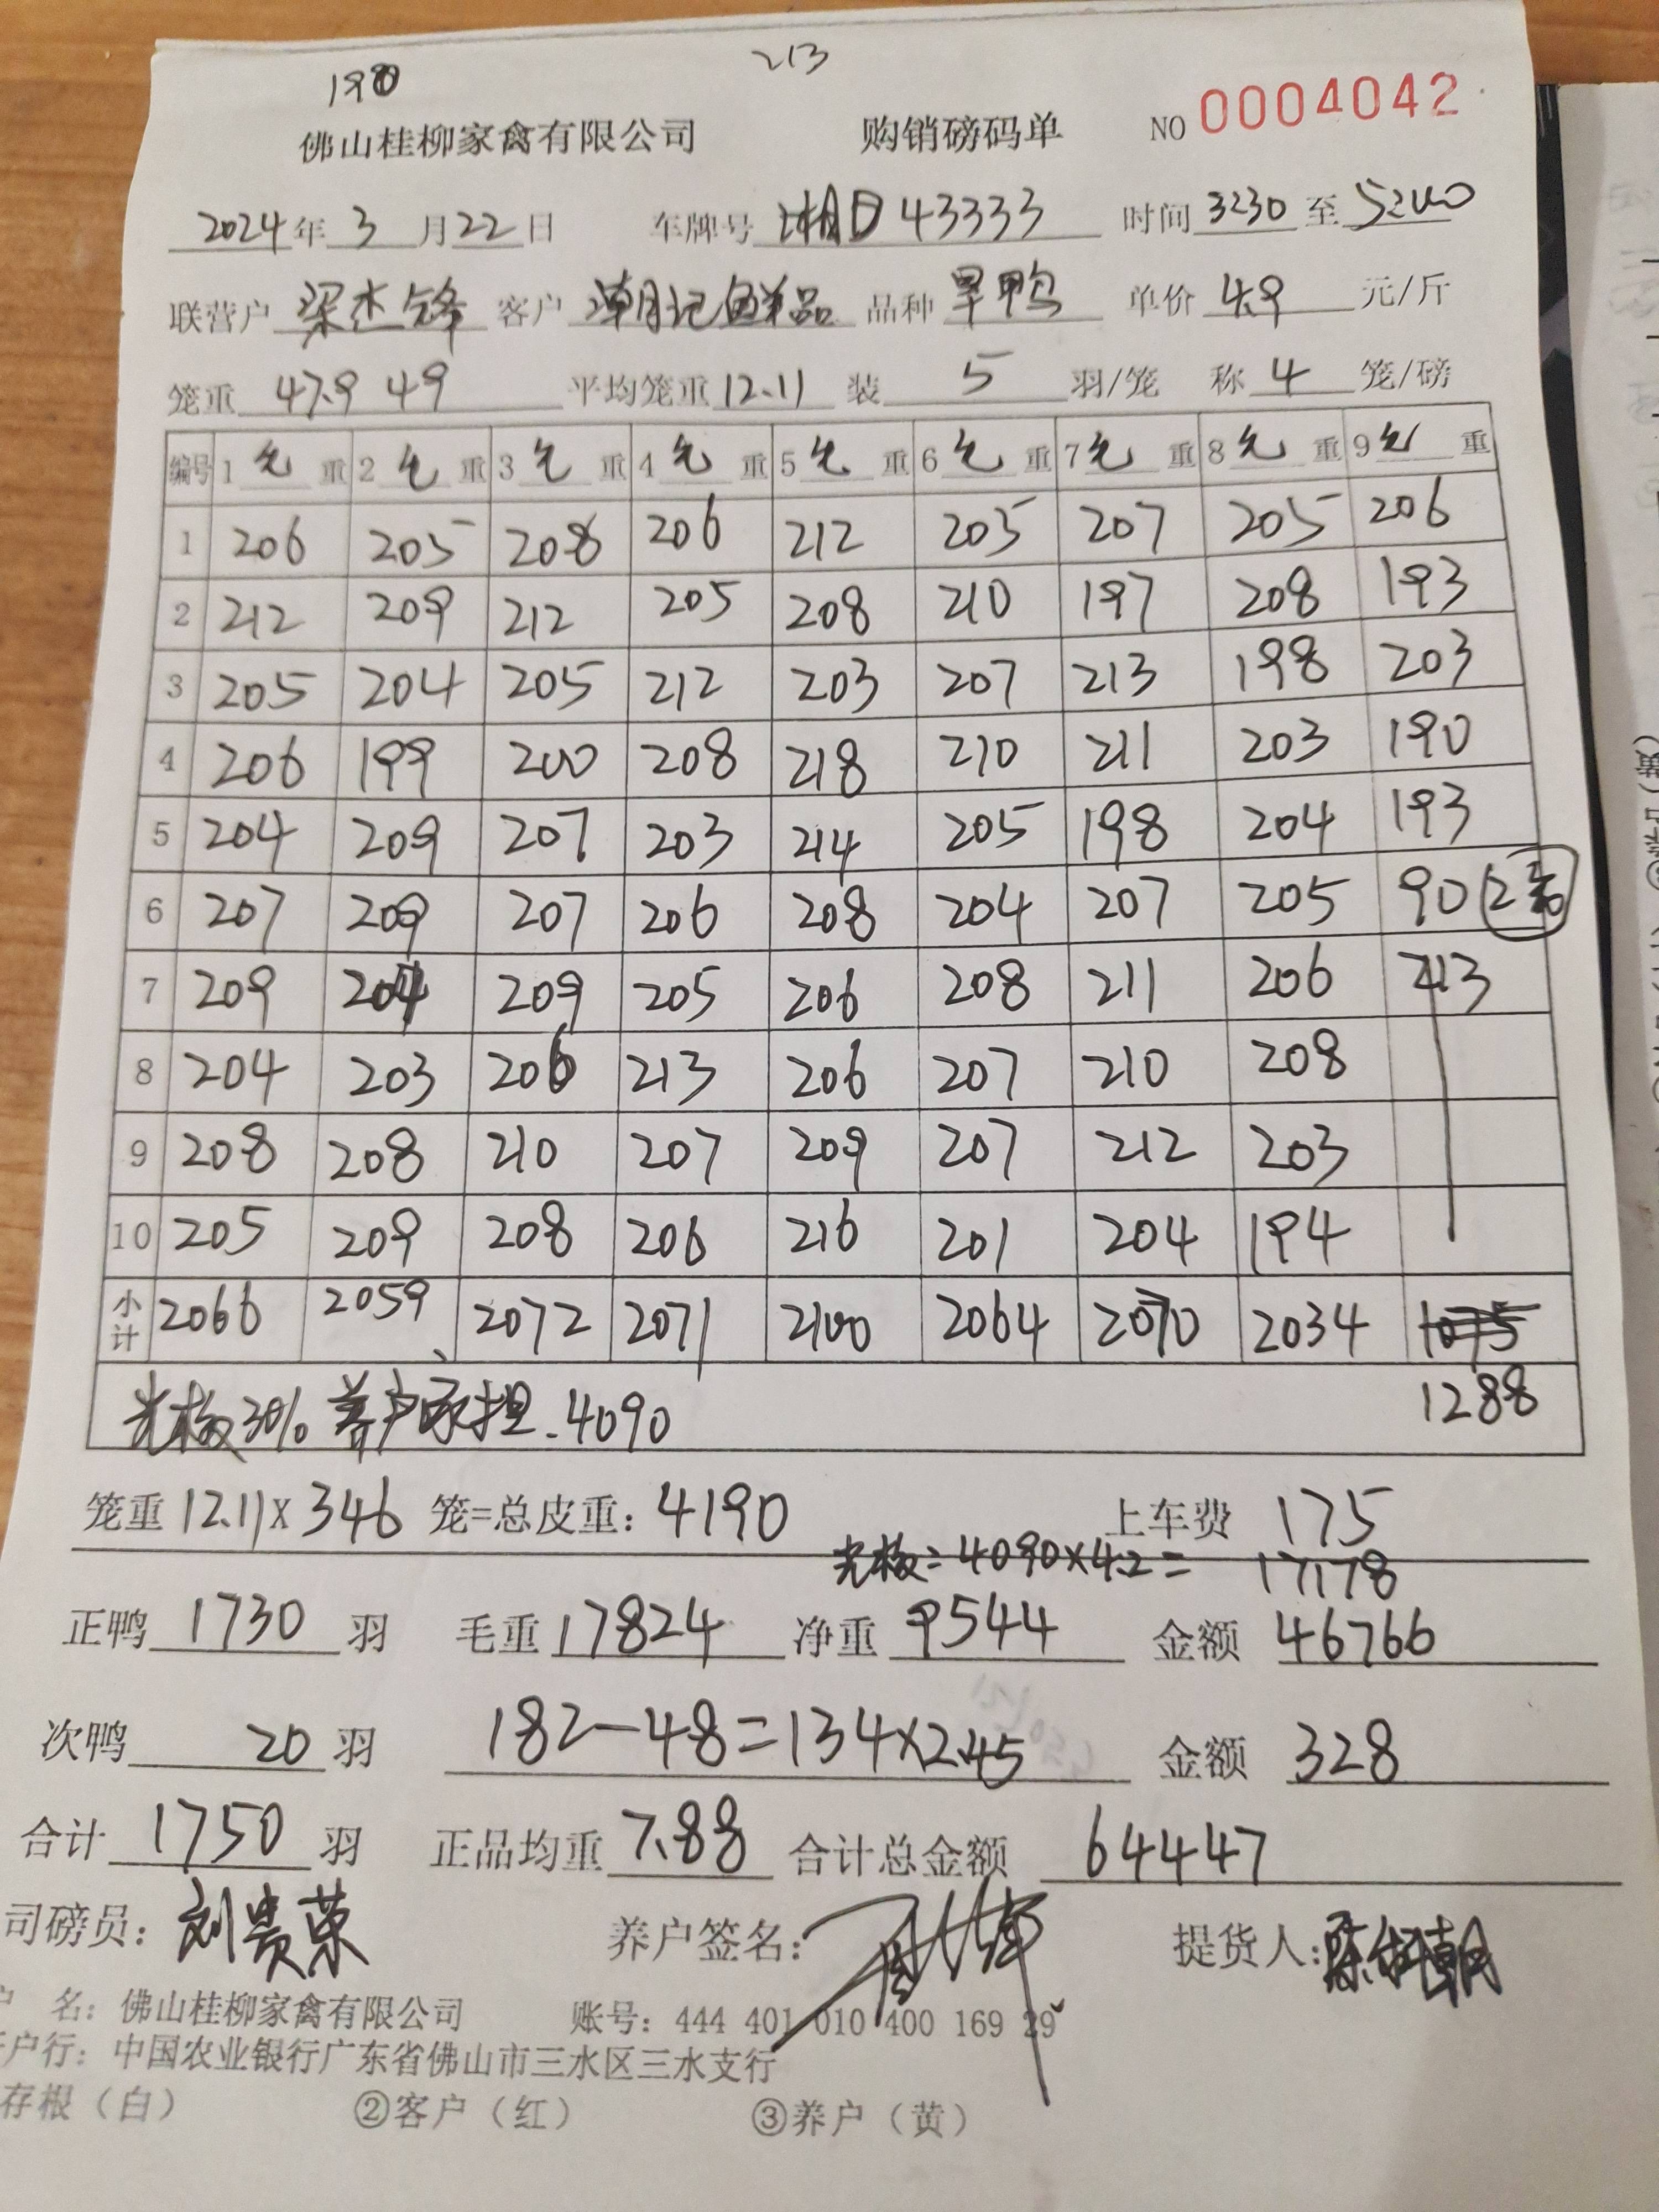 190 213
佛山桂柳家禽有限公司 购销磅码单 NO 0004042
2024年 3 月 22 日 车牌号 湘D 43333 时间 3230 至
联营户 梁杰锋 客户 潮记鲜品 品种 旱鸭 单价 4.9 元/斤
笼重 47.9 49 平均笼重 12.11 装 5 羽/笼 称 4 笼/磅
编号 1 毛 重 2 毛 重 3 毛 重 4 毛 重 5 毛 重 6 毛 重 7 毛 重 8 毛 重 9 毛 重
1 206 205 208 206 212 205 207 205 206
2 212 209 212 205 208 210 197 208 193
3 205 204 205 212 203 207 213 198 203
4 206 199 200 208 218 210 211 203 190
5 204 209 207 203 214 205 198 204 193
6 207 209 207 206 208 204 207 205 90
7 209 204 209 205 206 208 211 206 213
8 204 203 206 213 206 207 210 208
9 208 208 210 207 209 207 212 203
10 205 209 208 206 216 201 204 194
小计 2066 2059 2072 2071 2100 2064 2070 2034 1075
30% 养户承担. 4090 1288
笼重 12.11 x 346 笼=总皮重: 4190 上车费 175
= 4090 x 4.2 = 17178
正鸭 1730 羽 毛重 17824 净重 9544 金额 46766
次鸭 20 羽 182-48=134x2.45 金额 328
合计 1750 羽 正品均重 7.88 合计总金额 64447
司磅员: 刘贵荣 养户签名: 提货人:
户 名: 佛山桂柳家禽有限公司 账号: 444 401 010 400 169 29
户行: 中国农业银行广东省佛山市三水区三水支行
存根（白） ②客户（红） ③养户（黄）